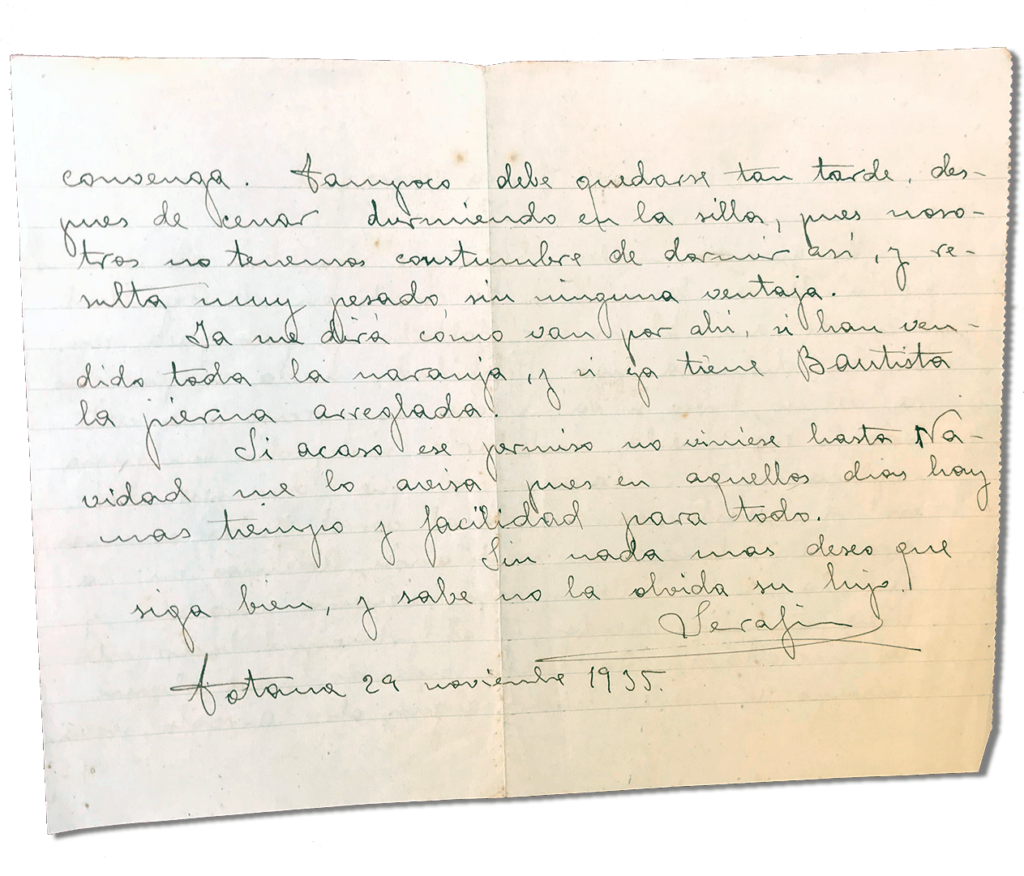 convenga. Tampoco debe quedarse tan tarde, des-
pues de cenar durmiendo en la silla, pues noso-
tros no tenemos constumbre de dormir así, y re-
sulta muy pesado sin ninguna ventaja.
Ya me dirá cómo van por ahí, si han ven-
dido toda la naranja, y si ya tiene Bautista
la pierna arreglada.
Si acaso ese permiso no viniese hasta Na-
vidad me lo avisa pues en aquellos dias hay
mas tiempo y facilidad para todo.
Sin nada mas deseo que
siga bien, y sabe no la olvida su hijo!
Serafin
Totana 29 noviembre 1935.